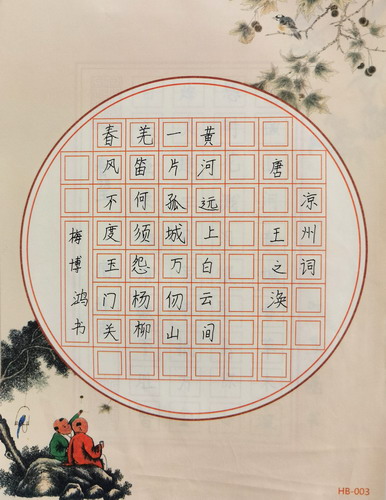 凉州词
唐 王之涣
黄河远上白云间
一片孤城万仞山
羌笛何须怨杨柳
春风不度玉门关
梅博鸿书
HB-003